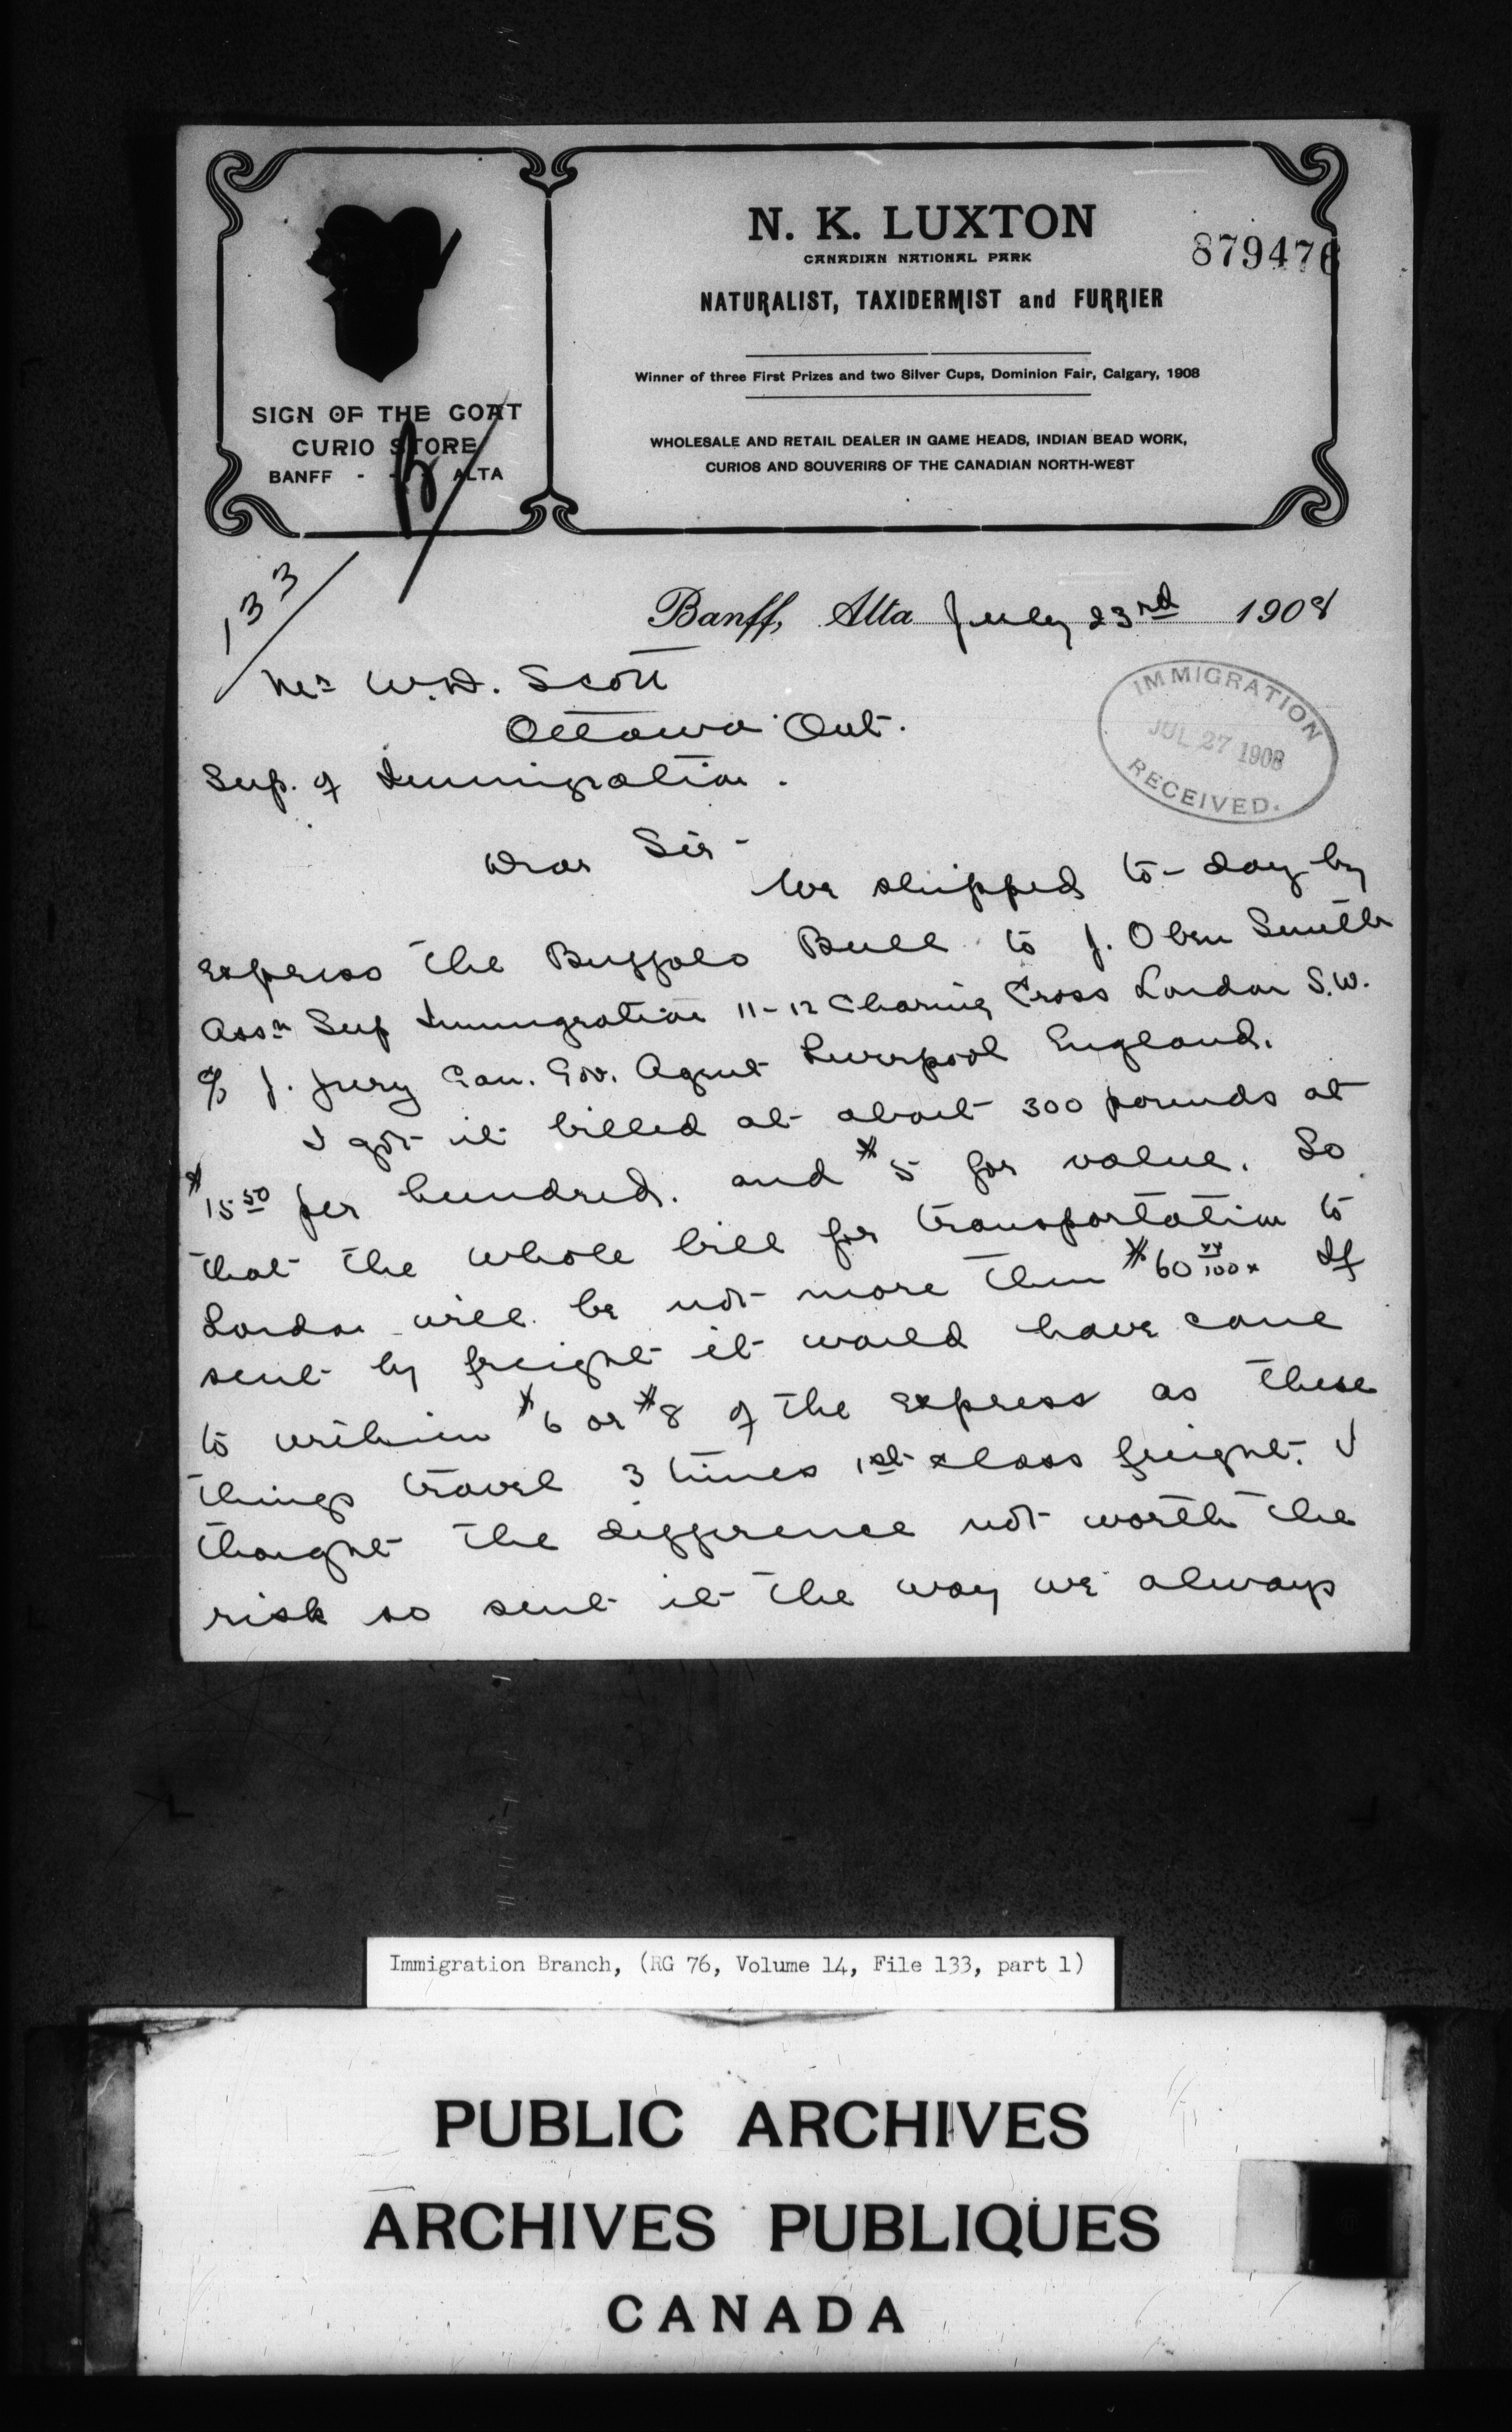 N. K. LUXTON
CANADIAN NATIONAL PARK
879476
NATURALIST, TAXIDERMIST and FURRIER
Winner of three First Prizes and two Silver Cups, Dominion Fair, Calgary, 1908
WHOLESALE AND RETAIL DEALER IN GAME HEADS, INDIAN BEAD WORK,
CURIOS AND SOUVERIRS OF THE CANADIAN NORTH-WEST
SIGN OF THE GOAT
CURIO STORE
BANFF - - ALTA
133
Banff, Alta July 23rd 1908
Mr W.D. Scott
Ottawa Ont.
Sup. of Immigration.
IMMIGRATION
JUL 27 1908
RECEIVED.
Dear Sir -
We shipped to-day by
express the Buffalo Bull to J. Oben Smith
Assn Sup Immigration 11-12 Charing Cross London S.W.
c/o J. Jury Can. Gov. Agent Liverpool England.
I got it billed at about 300 pounds at
$15.50 per hundred. and $5 for value. So
that the whole bill for transportation to
London will be not more then $60 xx/100 x If
sent by freight it would have came
to within $6 or $8 of the express as these
things travel 3 times 1st class freight. I
thought the difference not worth the
risk so sent it the way we always
Immigration Branch, (RG 76, Volume 14, File 133, part 1)
PUBLIC ARCHIVES
ARCHIVES PUBLIQUES
CANADA